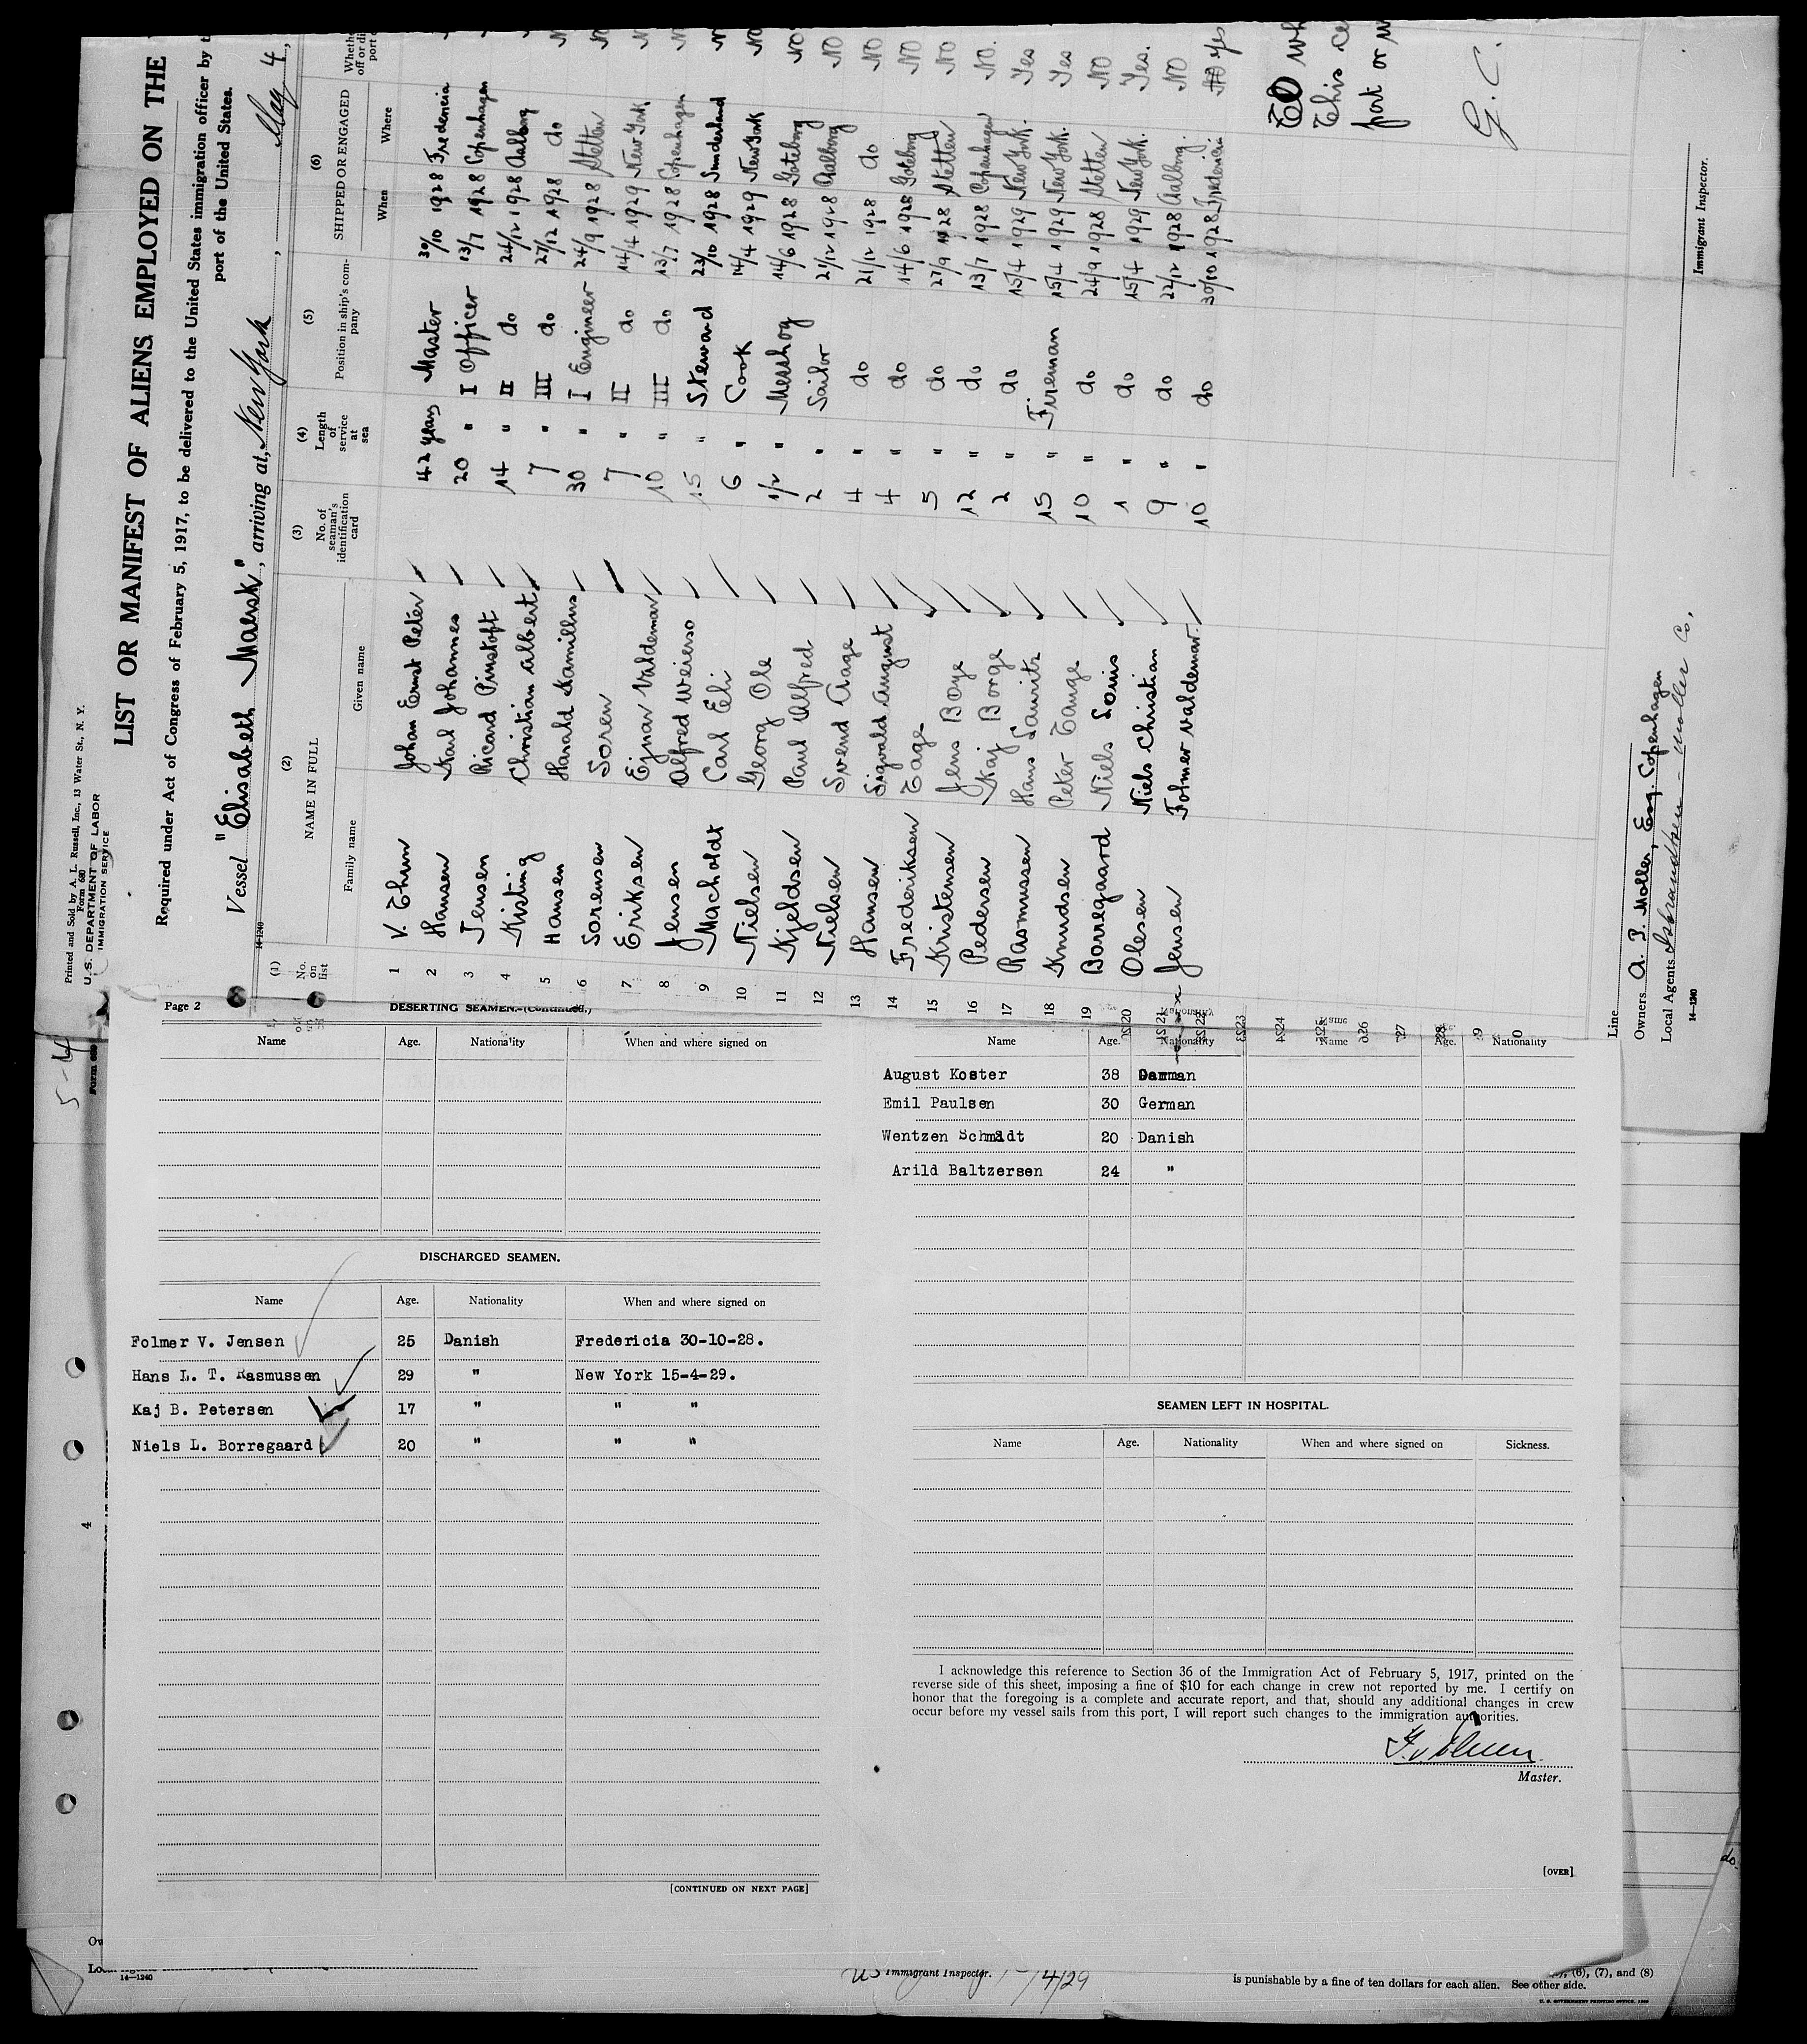 Printed and Sold by A. L. Russell, Inc., 13 Water St., N. Y.
Form 680
U. S. DEPARTMENT OF LABOR
IMMIGRATION SERVICE
LIST OR MANIFEST OF ALIENS EMPLOYED ON THE
Required under Act of Congress of February 5, 1917, to be delivered to the United States immigration officer by
port of the United States.
Vessel "Elisabeth Maersk", arriving at, New York, May 4,
14-1240
(1) (2) (3) (4) (5) (6)
No. on list NAME IN FULL No. of seaman's identification card Length of service at sea Position in ship's company SHIPPED OR ENGAGED
Family name Given name When Where
1 V. Thun Johan Ernst Peter 42 years Master 30/10 1928 Fredericia
2 Hansen Karl Johannes 20 " I Officer 13/7 1928 Copenhagen
3 Jensen Ricard Pinstoft 14 " II do 24/12 1928 Aalborg
4 Kisting Christian Albert 7 " III do 27/12 1928 do
5 Hansen Harald Kamillus 30 " I Engineer 24/9 1928 Stetten
6 Sorensen Soren 7 " II do 14/4 1929 New York
7 Eriksen Ejnar Valdemar 10 " III do 13/7 1928 Copenhagen
8 Jensen Alfred Weierso 15 " Steward 23/10 1928 Sunderland
9 Macholdt Carl Eli 6 " Cook 14/4 1929 New York
10 Nielsen Georg Ole 1/2 " Messboy 14/6 1928 Goteborg NO
11 Kjeldsen Paul Alfred 2 " Sailor 21/12 1928 Aalborg NO
12 Nielsen Svend Aage 4 " do 21/12 1928 do NO
13 Hansen Sigvald August 4 " do 14/6 1928 Goteborg NO
14 Frederiksen Tage 5 " do 27/9 1928 Stetten NO
15 Kristensen Jens Boye 12 " do 13/7 1928 Copenhagen NO.
16 Pedersen Kaj Borge 2 " do 15/4 1929 New York. Yes
17 Rasmussen Hans Lauritz 15 " Fireman 15/4 1929 New York. Yes
18 Knudsen Peter Tange 10 " do 24/9 1928 Stetten NO
19 Borregaard Niels Louis 1 " do 15/4 1929 New York. Yes.
20 Olesen Niels Christian 9 " do 22/12 1928 Aalborg. NO
21 Jensen Folmer Valdemar. 10 " do 30/10 1928 Fredericia Yes
22
23
24
26
27
28
Line
Owners A. P. Moller, Esq. Copenhagen
Local Agents Isbrandtsen - Moller Co,
14-1240
This
port or
G. C.
Immigrant Inspector.
5-4
Page 2
DESERTING SEAMEN.-(Continued.)
Name Age. Nationality When and where signed on
DISCHARGED SEAMEN.
Name Age. Nationality When and where signed on
Folmer V. Jensen 25 Danish Fredericia 30-10-28.
Hans L. T. Rasmussen 29 " New York 15-4-29.
Kaj B. Petersen 17 " " "
Niels L. Borregaard 20 " " "
[CONTINUED ON NEXT PAGE]
Name Age. Nationality Name Age. Nationality
August Koster 38 German
Emil Paulsen 30 German
Wentzen Schmidt 20 Danish
Arild Baltzersen 24 "
SEAMEN LEFT IN HOSPITAL.
Name Age. Nationality When and where signed on Sickness.
I acknowledge this reference to Section 36 of the Immigration Act of February 5, 1917, printed on the
reverse side of this sheet, imposing a fine of $10 for each change in crew not reported by me. I certify on
honor that the foregoing is a complete and accurate report, and that, should any additional changes in crew
occur before my vessel sails from this port, I will report such changes to the immigration authorities.
Master.
[OVER]
4
do.
14-1240
US Immigrant Inspector. /4/29
(6), (7), and (8)
is punishable by a fine of ten dollars for each alien. See other side.
U. S. GOVERNMENT PRINTING OFFICE